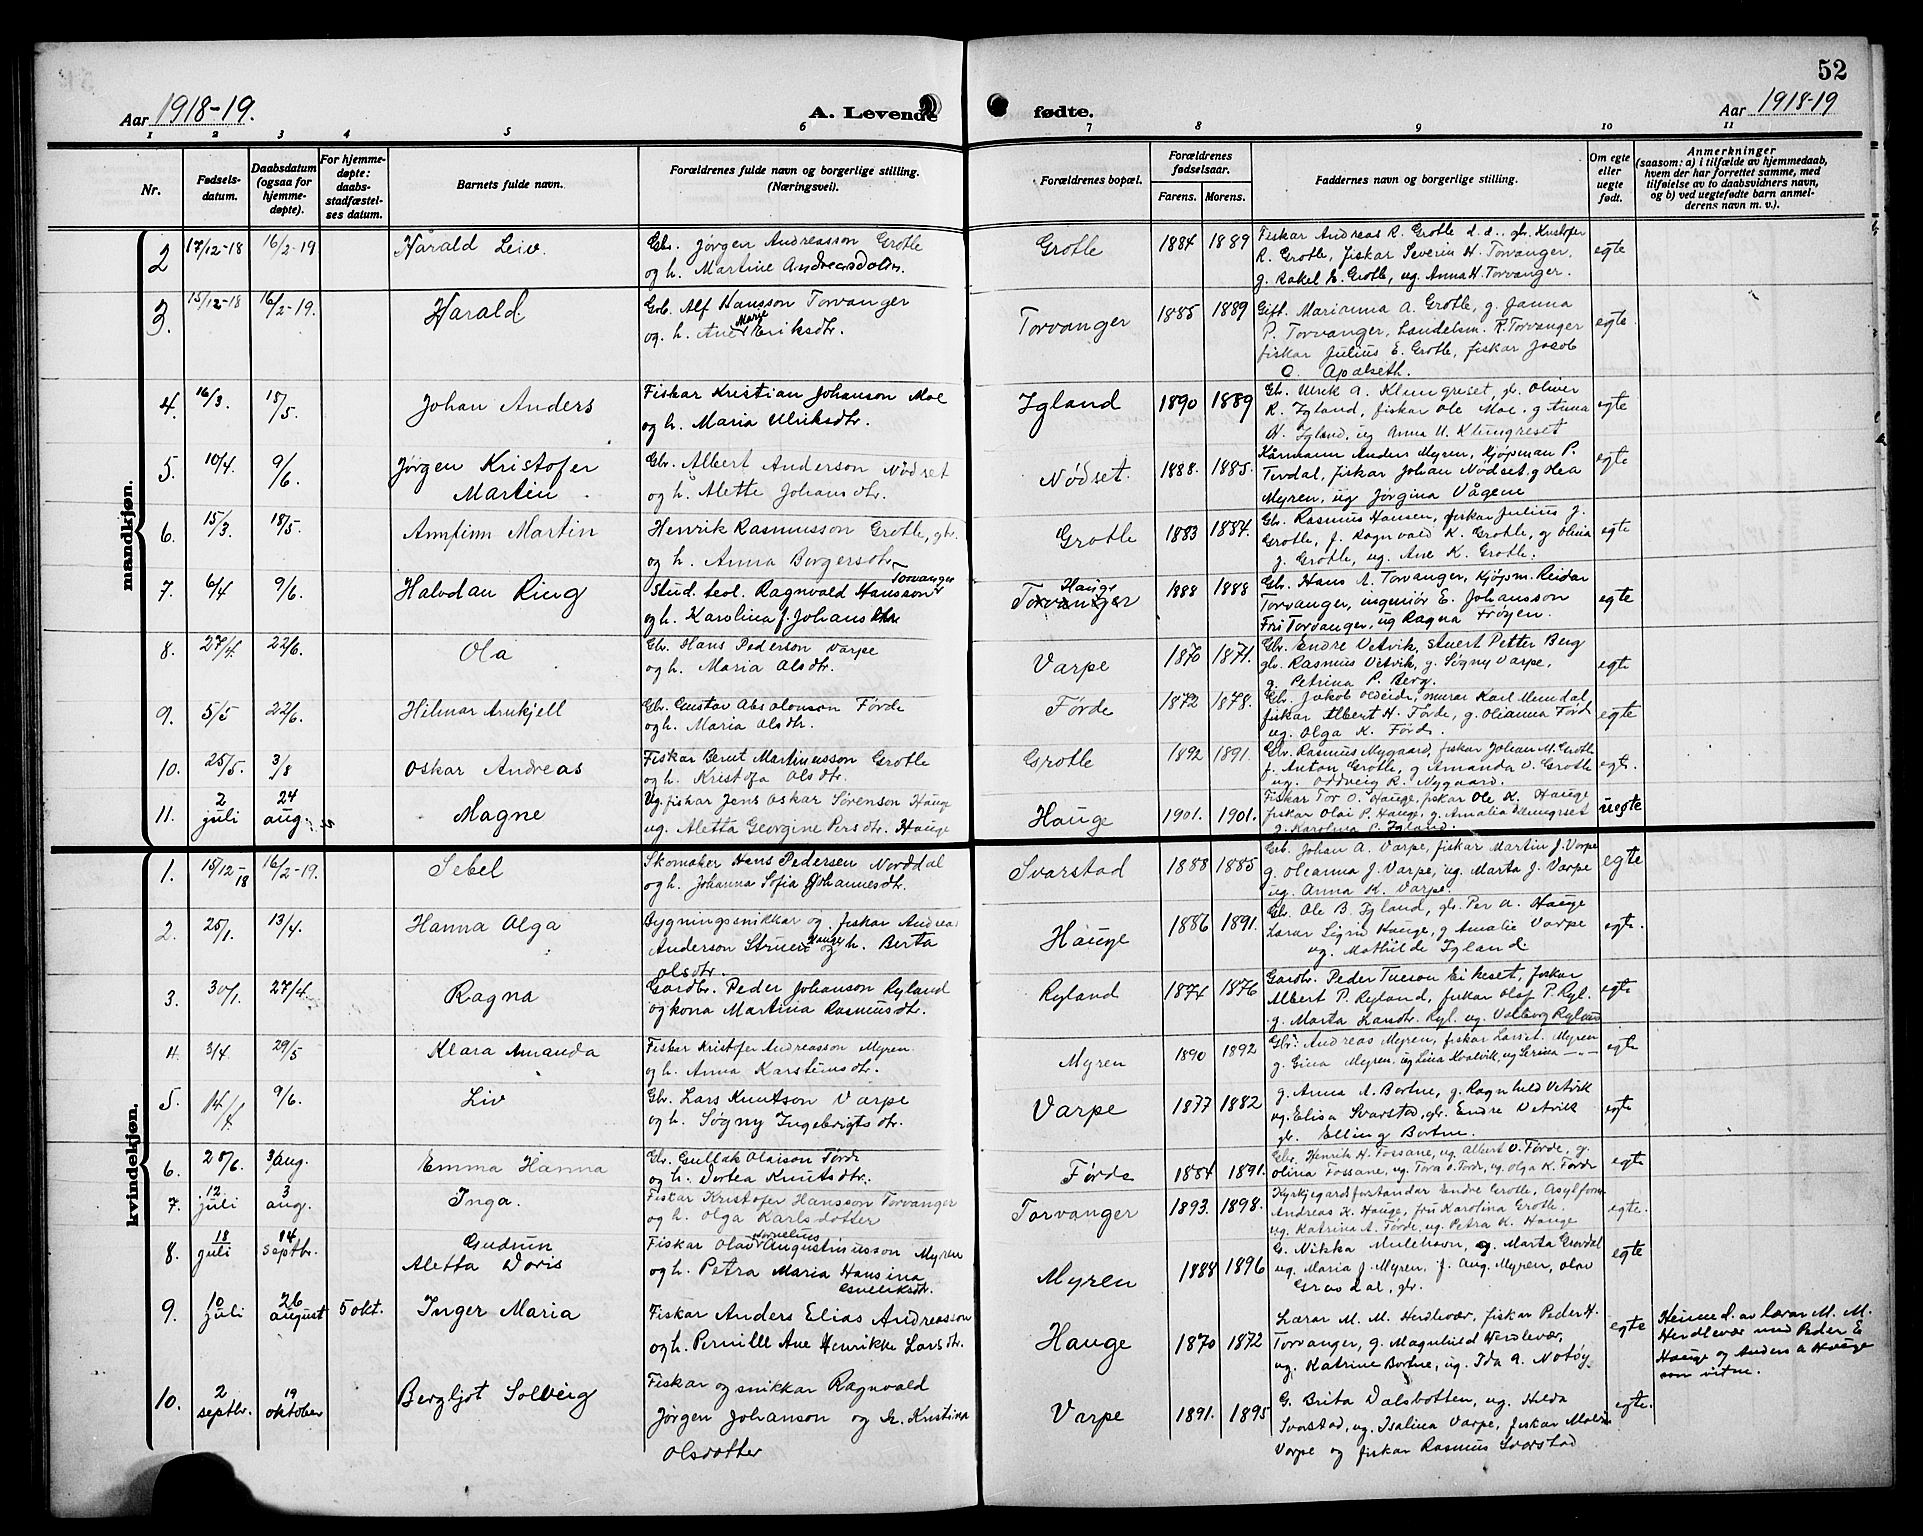 52
Aar 1918-19.
A. Levende fødte.
Aar 1918-19
1 2 3 4 5 6 7 8 9 10 11
Nr.
Fødselsdatum.
Daabsdatum (ogsaa for hjemmedøpte).
For hjemmedøpte: daabsstadfæstelses datum.
Barnets fulde navn.
Forældrenes fulde navn og borgerlige stilling. (Næringsvei).
Forældrenes bopæl.
Forældrenes fødselsaar.
Farens. Morens.
Faddernes navn og borgerlige stilling.
Om egte eller uegte født.
Anmerkninger (saasom: a) i tilfælde av hjemmedaab, hvem der har forrettet samme, med tilføielse av to daabsvidners navn, og b) ved uegtefødte barn anmelderens navn m. v.).
mandkjøn.
2 17/12-18 16/2-19 Harald Leiv. Gbr. Jørgen Andreasson Grotle
og h. Martine Andreasdotr. Grotle 1884 1889 Fiskar Andreas R. Grotle d.d.. gbr. Kristofer
R. Grotle, fiskar Severin H. Torvanger,
g. Rakel E. Grotle, ug. Anna H. Torvanger. egte
3. 15/12-18 16/2-19. Harald. Grb. Alf Hansson Torvanger
og. h. Ane Marie Eriksdtr. Torvanger 1885 1889 Gift. Marianna A. Grotle, g. Janna
P. Torvanger, handelsm. R. Torvanger
fiskar Julius E. Grotle, fiskar Jacob
O. Apalseth. egte.
4. 16/3. 15/5. Johan Anders Fiskar Kristian Johanson Moe
og h. Maria Ulriksdtr. Igland 1890 1889 Gbr. Ulrik A. Klungreset, gbr. Oliver
R. Igland, fiskar Ole Moe. g Anna
N. Igland, ug Anna U. Klungreset egte
5. 10/4. 9/6. Jørgen Kristofer
Martin Gbr. Albert Anderson Nødset
og h. Alette Johansdtr. Nødset. 1888. 1885. Kårmann Anders Myren, Kjøpman P.
Tevdal, fiskar Johan Nødset, g Olea
Myren, ug Jørgina Vågene egte
6. 15/3. 18/5. Arnfinn Martin Henrik Rasmusson Grotle, gbr.
og h. Anna Borgersdtr. Grotle 1883 1884. Gbr. Rasmus Hansen, fiskar Julius J.
Grotle, f. Ragnvald K. Grotle, g Olina
J. Grotle, ug. Ane K. Grotle. egte
7. 6/4 9/6. Halvdan Ring Stud. teol. Ragnvald Hansson Torvanger
og h. Karolina f. Johansdtr Hauge Torvanger 1888 1888 Gbr. Hans A. Torvanger, Kjøpm. Reidar
Torvanger, ingeniør E. Johansson
Fru Torvanger, ug Ragna Frøyen. egte
8. 27/4. 22/6. Ola Gbr. Hans Pederson Varpe
og h. Maria Olsdtr. Varpe 1870 1871. Gbr. Endre Vetvik, stuert Petter Berg
gbr. Rasmus Vetvik, g. Søgny Varpe,
g. Petrina P. Berg. egte
9. 5/5 22/6. Hilmar Arnkjell Gbr. Gustav Absalonson Førde
og h. Maria Olsdtr. Førde 1872 1878. Gbr. Jakob Oldeide, murar Karl Mundal,
fiskar Albert H. Førde, g. Olianna Førd
ug. Olga K. Førde. egte
10. 25/5. 3/8 Oskar Andreas Fiskar Bernt Martinusson Grotle
og h. Kristofa Olsdtr. Grotle 1892 1891. Gbr. Rasmus Nygaard, fiskar Johan M. Grotle
f. Anton Grotle, g Amanda O. Grotle
ug. Oddveig R. Nygaard. egte.
11. 2 juli 24 aug. Magne Ug. fiskar Jens Oskar Sørenson Hauge
ug. Aletta Georgine Persdtr. Hauge Hauge 1901. 1901. Fiskar Tor O. Hauge, fiskar Ole K. Hauge
fiskar Olai P. Hauge, g Amalia Klungreset
g. Karolina P. Igland. uegte
kvindekjøn.
1. 15/12-18 16/2-19. Sebel Skomaker Hans Pedersen Norddal
og h. Johanna Sofia Johannesdtr. Svarstad 1888 1885 Grb. Johan A. Varpe, fiskar Martin J. Varpe
g. Oleanna J. Varpe, ug. Marta J. Varpe
ug. Anna K. Varpe. egte
2. 25/1. 13/4. Hanna Olga Bygningssnikkar og fiskar Andreas
Anderson Struen Hauge og h. Berta
Olsdtr. Hauge 1886 1891. Gbr. Ole B. Igland, gbr. Per A. Hauge
Lærar Signe Hauge, g Amalie Varpe
ug. Mathilde Igland egte.
3. 30/1. 27/4. Ragna Gardbr. Peder Johanson Ryland
og kona Martina Rasmusdtr. Ryland 1874 1876 Gardbr. Peder Tueson Eikeset, fiskar
Albert P. Ryland, fiskar Olaf P. Ryl.
g. Marta Larsdtr. Ryl. ug Valborg Ryland egte
4. 3/4. 29/5 Klara Amanda Fiskar Kristofer Andreasson Myren.
og h. Anna Karstensdtr. Myren 1890 1892 Gbr. Andreas Myren, fiskar Lars t. Myren
g. Gina Myren. ug Lina Kvalvik, ug Serina -..- egte
5. 14/4 9/6. Liv Gbr. Lars Knutson Varpe
og h. Søgny Ingebrigtsdtr. Varpe 1877 1882 g. Anna A. Bortne, g. Ragnhild Vetvik
ug. Elisa Svarstad, gbr. Endre Vetvik
gbr. Elling Bortne. egte
6. 28/6. 3/aug. Emma Hanna Gbr. Gullak Olaison Førde
og h. Dortea Knutsdtr. Førde 1884 1891. Gbr. Henrik H. Fossane, ug. Albert O. Førde, g.
Olina Fossane, ug. Tora O. Førde, ug. Olga K. Førde egte
7. 12 juli 3 aug. Inga. Fiskar Kristofer Hansson Torvanger
og h. Olga Karlsdotter Torvanger 1893. 1898. Kyrkjegardsforstandar Endre Grotle, Asylform.
Andreas K. Hauge, fru Karolina Grotle.
ug. Katrina A. Førde, ug. Petra K. Hauge egte.
8. 18 juli 14 septbr. Gudrun
Aletta Doris Fiskar Olav Kornelius Augustinusson Myren
og h. Petra Maria Hansina
Myren 1888 1896 G. Nikka Mulehavn, g. Marta Grovdal
ug. Maria J. Myren, f. Aug. Myren, Olav
Grovdal, gbr. egte
9. 10 juli 26 august 5 okt. Inger Maria Fiskar Anders Elias Andreasson
og h. Pernille Ane Henrikke Larsdtr. Hauge 1870 1872 Lærar M. M. Herdlevær, fiskar Peder H.
Torvanger, g. Magnhild Herdlevær,
ug. Katrine Bortne, ug. Ida A. Notøy. egte Heime d. av lærar M. M.
Herdlevær med Peder E
Hauge og Anders A Hauge
som vitne.
10. 2 septbr. 19 oktober Bergljot Solveig Fiskar og snikkar Ragnvald
Jørgen Johanson og h. Kristina
Olsdotter Varpe 1891. 1895 G. Brita Dalsbotten, ug. Hilda
Svarstad, ug. Isalina Varpe, fiskar
Varpe og fiskar Rasmus Svarstad egte.